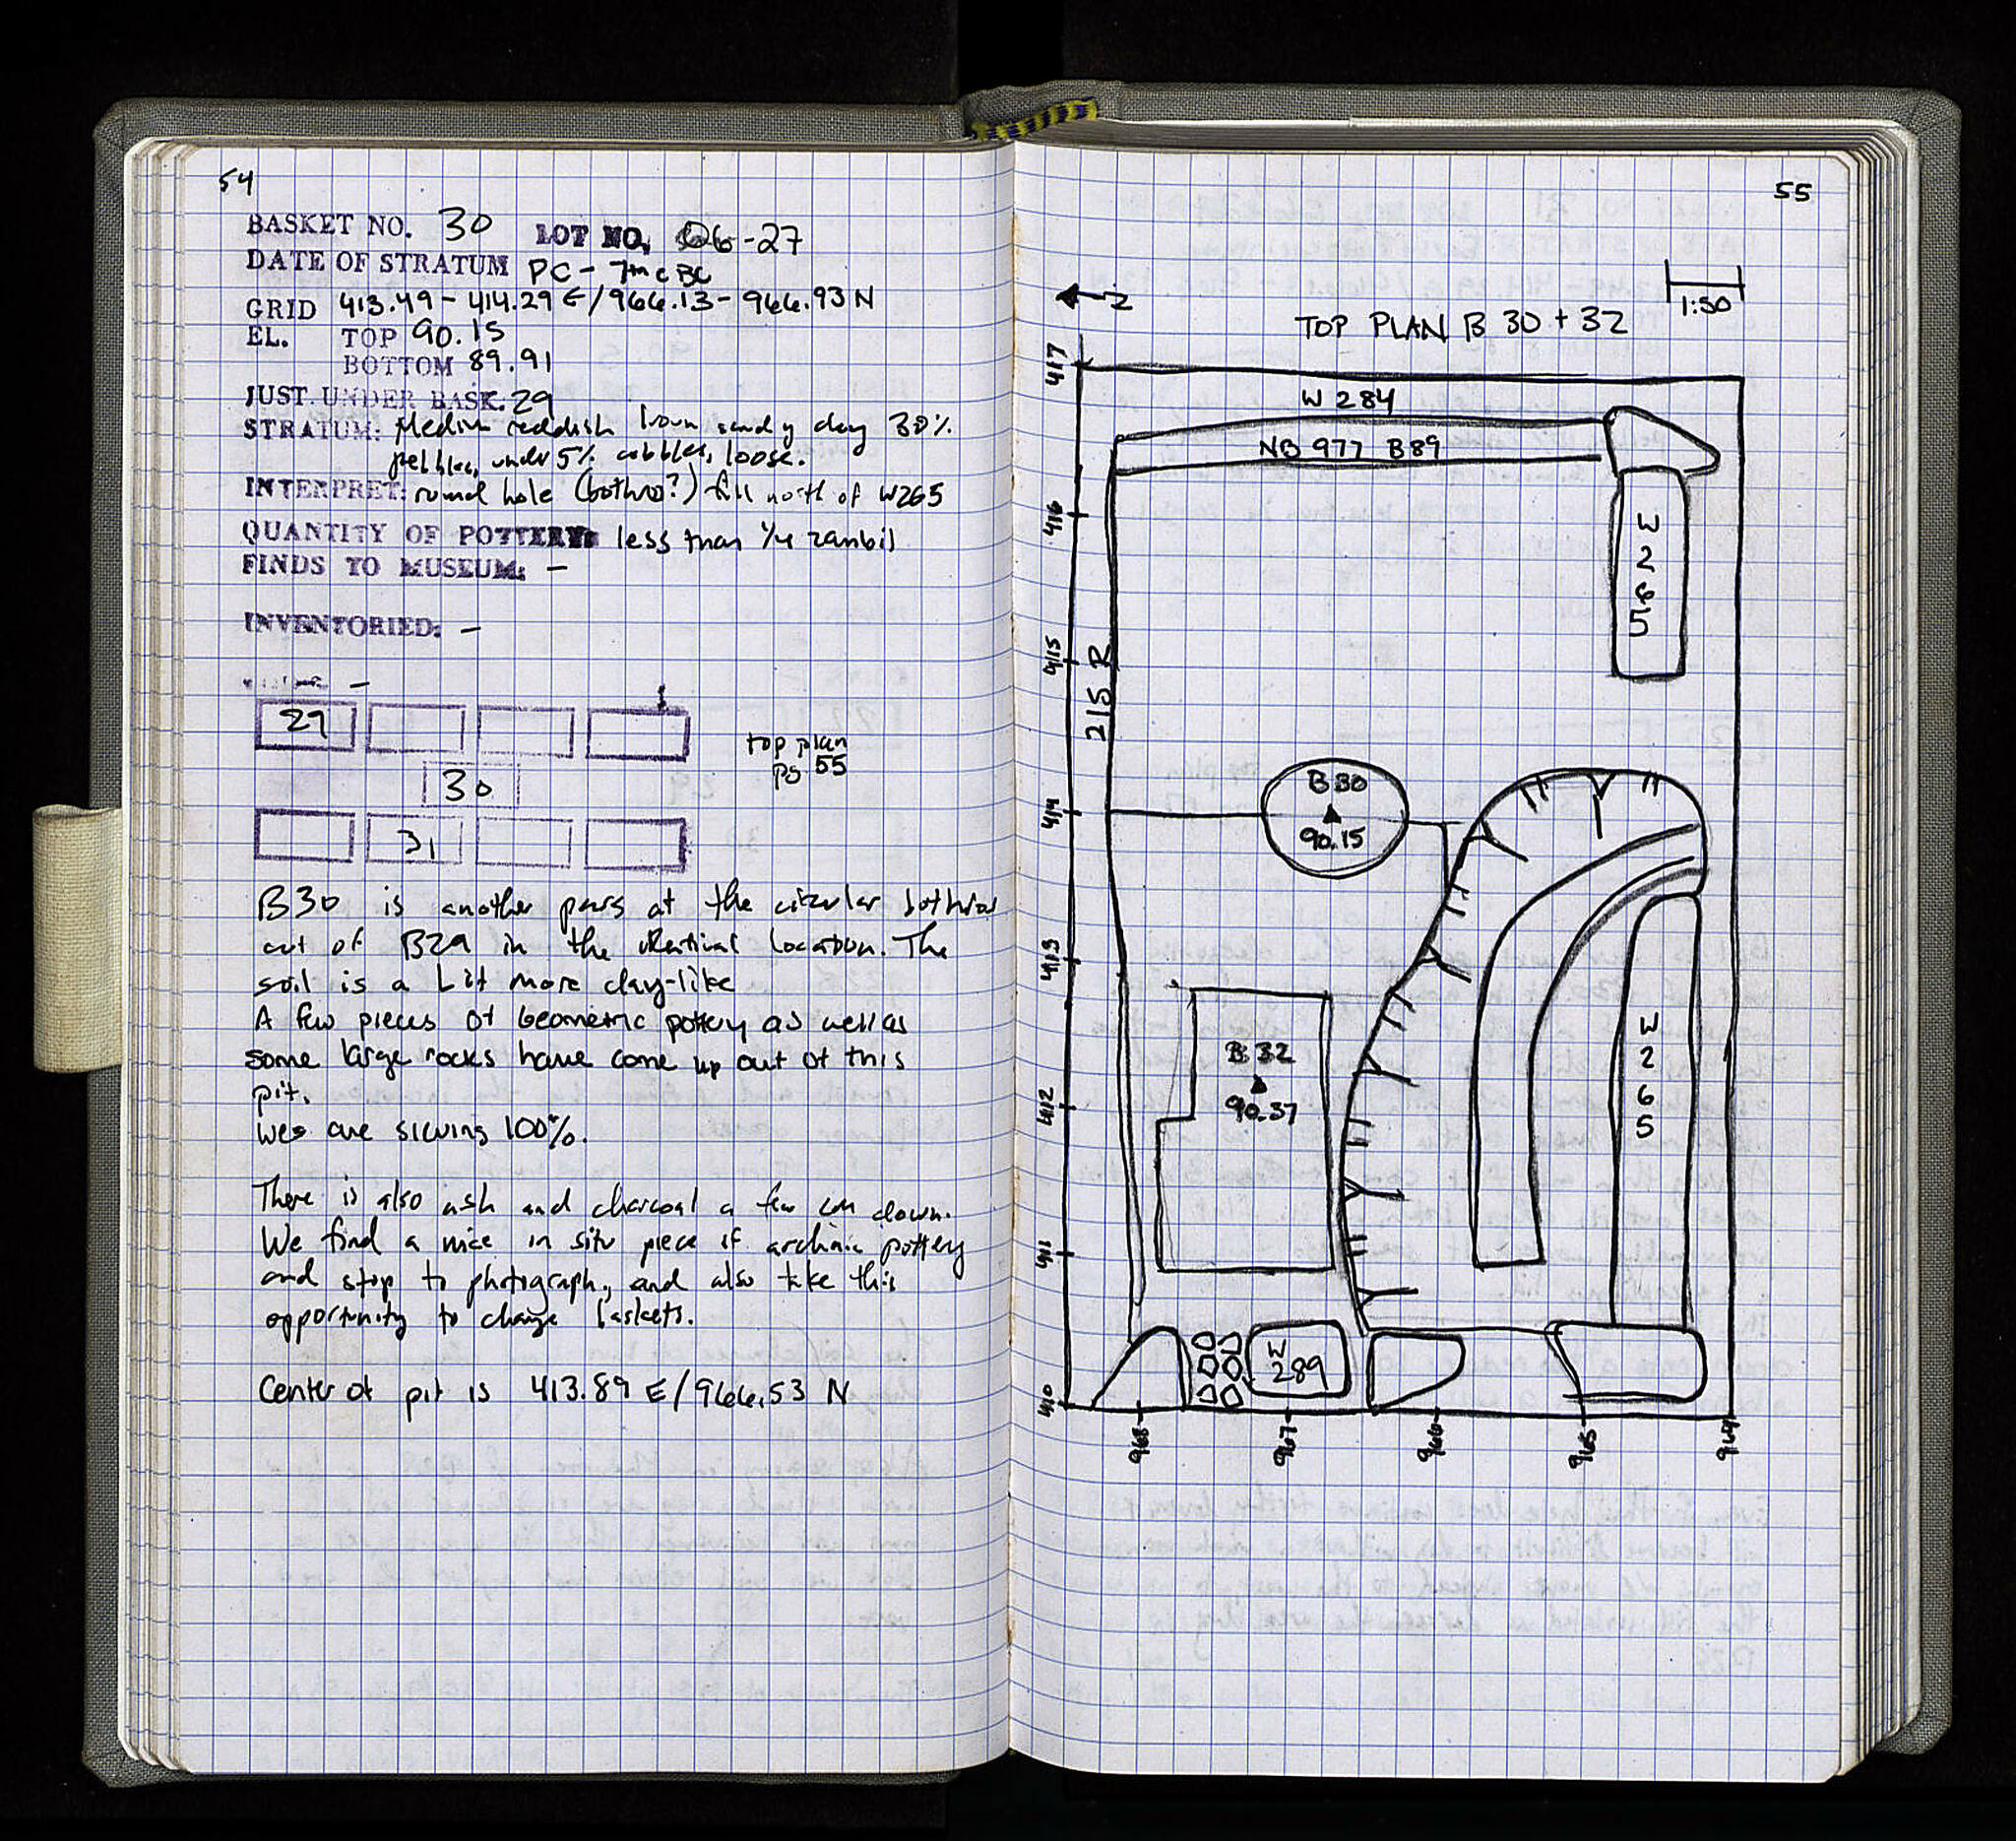 54
BASKET NO. 30 LOT NO. 06-27
DATE OF STRATUM PC - 7mc BC
GRID 413.49 - 414.29 E/966.13 - 966.93 N
EL. TOP 90.15
BOTTOM 89.91
JUST. UNDER BASK. 29
STRATUM: Medium reddish brown sandy clay 30%
pebbles, under 5% cobbles, loose.
INTERPRET: round hole (bothros?) fill north of W265
QUANTITY OF POTTERY: less than 1/4 zambil
FINDS TO MUSEUM: -
INVENTORIED: -
-
29
30
31
top plan
pg 55
B30 is another pass at the circular bothros
cut of B29 in the identical location. The
soil is a bit more clay-like
A few pieces of Geometric pottery as well as
some large rocks have come up out of this
pit.
We are sieving 100%.
There is also ash and charcoal a few cm down.
We find a nice in situ piece of archaic pottery
and stop to photograph, and also take this
opportunity to change baskets.
Center of pit is 413.89 E/966.53 N
55
Z
1:50
TOP PLAN B 30 + 32
417
W 284
NB 977 B89
416
W 265
415
215 R
414
B 30
90.15
413
B 32
90.37
412
W 265
411
W 289
410
968 967 966 965 964